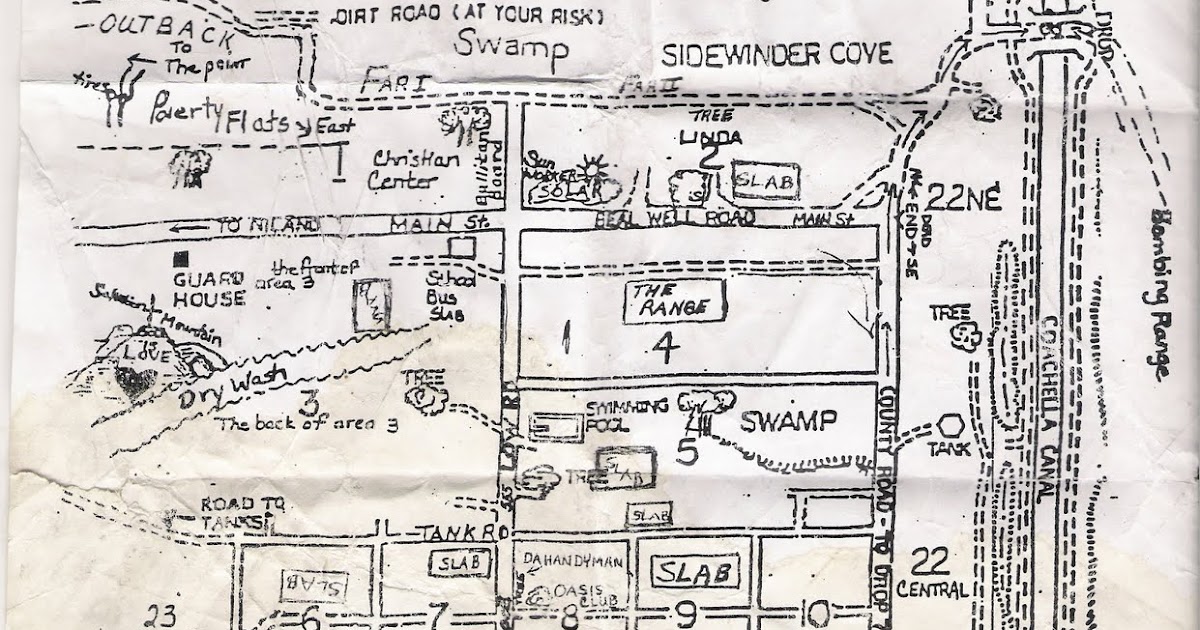 DIRT ROAD (AT YOUR RISK)
OUTBACK
TO
The point
Swamp
SIDEWINDER COVE
DROP
tires
FAR I
FAR II
Poverty
Flats
East
Christian
Center
Bullitan
Board
Sun
SOLAR
TREE
LINDA
2
SLAB
22NE
TO NILAND
MAIN St.
BEAL WELL ROAD
MAIN St
END
SE
Bombing Range
GUARD
HOUSE
the front of
area 3
School
Bus
SLAB
THE
RANGE
1
4
TREE
COACHELLA CANAL
Salvation Mountain
LOVE
Dry Wash
3
The back of area 3
TREE
LOW RD
SWIMMING
POOL
SWAMP
5
COUNTY ROAD TO DROP 7
TANK
TREE
SLAB
SLAB
ROAD TO
TANKS
TANK RD
SLAB
SLAB
DA HANDYMAN
OASIS
CLUB
SLAB
22
CENTRAL
23
6
7
8
9
10